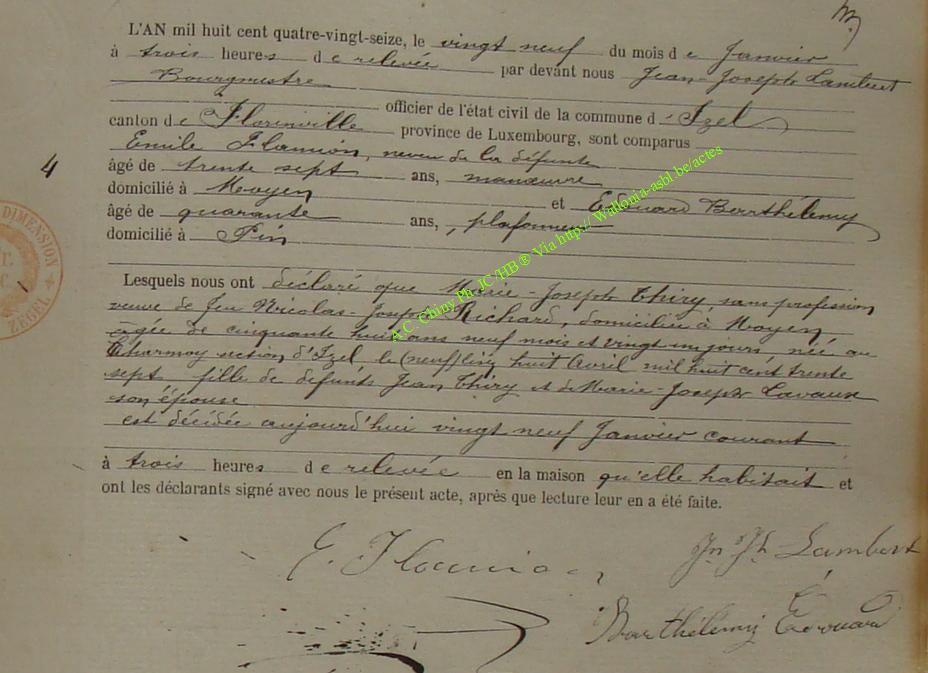 L'AN mil huit cent quatre-vingt-seize, le vingt neuf du mois de Janvier
à trois heures de relevée par devant nous Jean-Joseph Lambert
Bourgmestre
officier de l'état civil de la commune d'Izel
canton de Florenville province de Luxembourg, sont comparus
Emile Flamion, neveu de la défunte
âgé de trente sept ans, manœuvre
domicilié à Moyen et Edouard Barthélemy
âgé de quarante ans, plafonneur
domicilié à Pin
4
DIMENSION
ZEGEL
A.C. Chiny Ph. JC/HB ® Via http:// Wallonia-asbl.be/actes
Lesquels nous ont déclaré que Marie-Joseph Thiry, sans profession
veuve de feu Nicolas-Joseph Richard, domiciliée à Moyen,
âgée de cinquante huit ans neuf mois et vingt un jours, née au
Charmoy section d'Izel le (neuf) huit Avril mil huit cent trente
sept fille de défunts Jean Thiry et de Marie-Joseph Lavaux
son épouse
est décédée aujourd'hui vingt neuf Janvier courant
à trois heures de relevée en la maison qu'elle habitait et
ont les déclarants signé avec nous le présent acte, après que lecture leur en a été faite.
E. Flamion
Jn Jh Lambert
Barthélemy Edouard